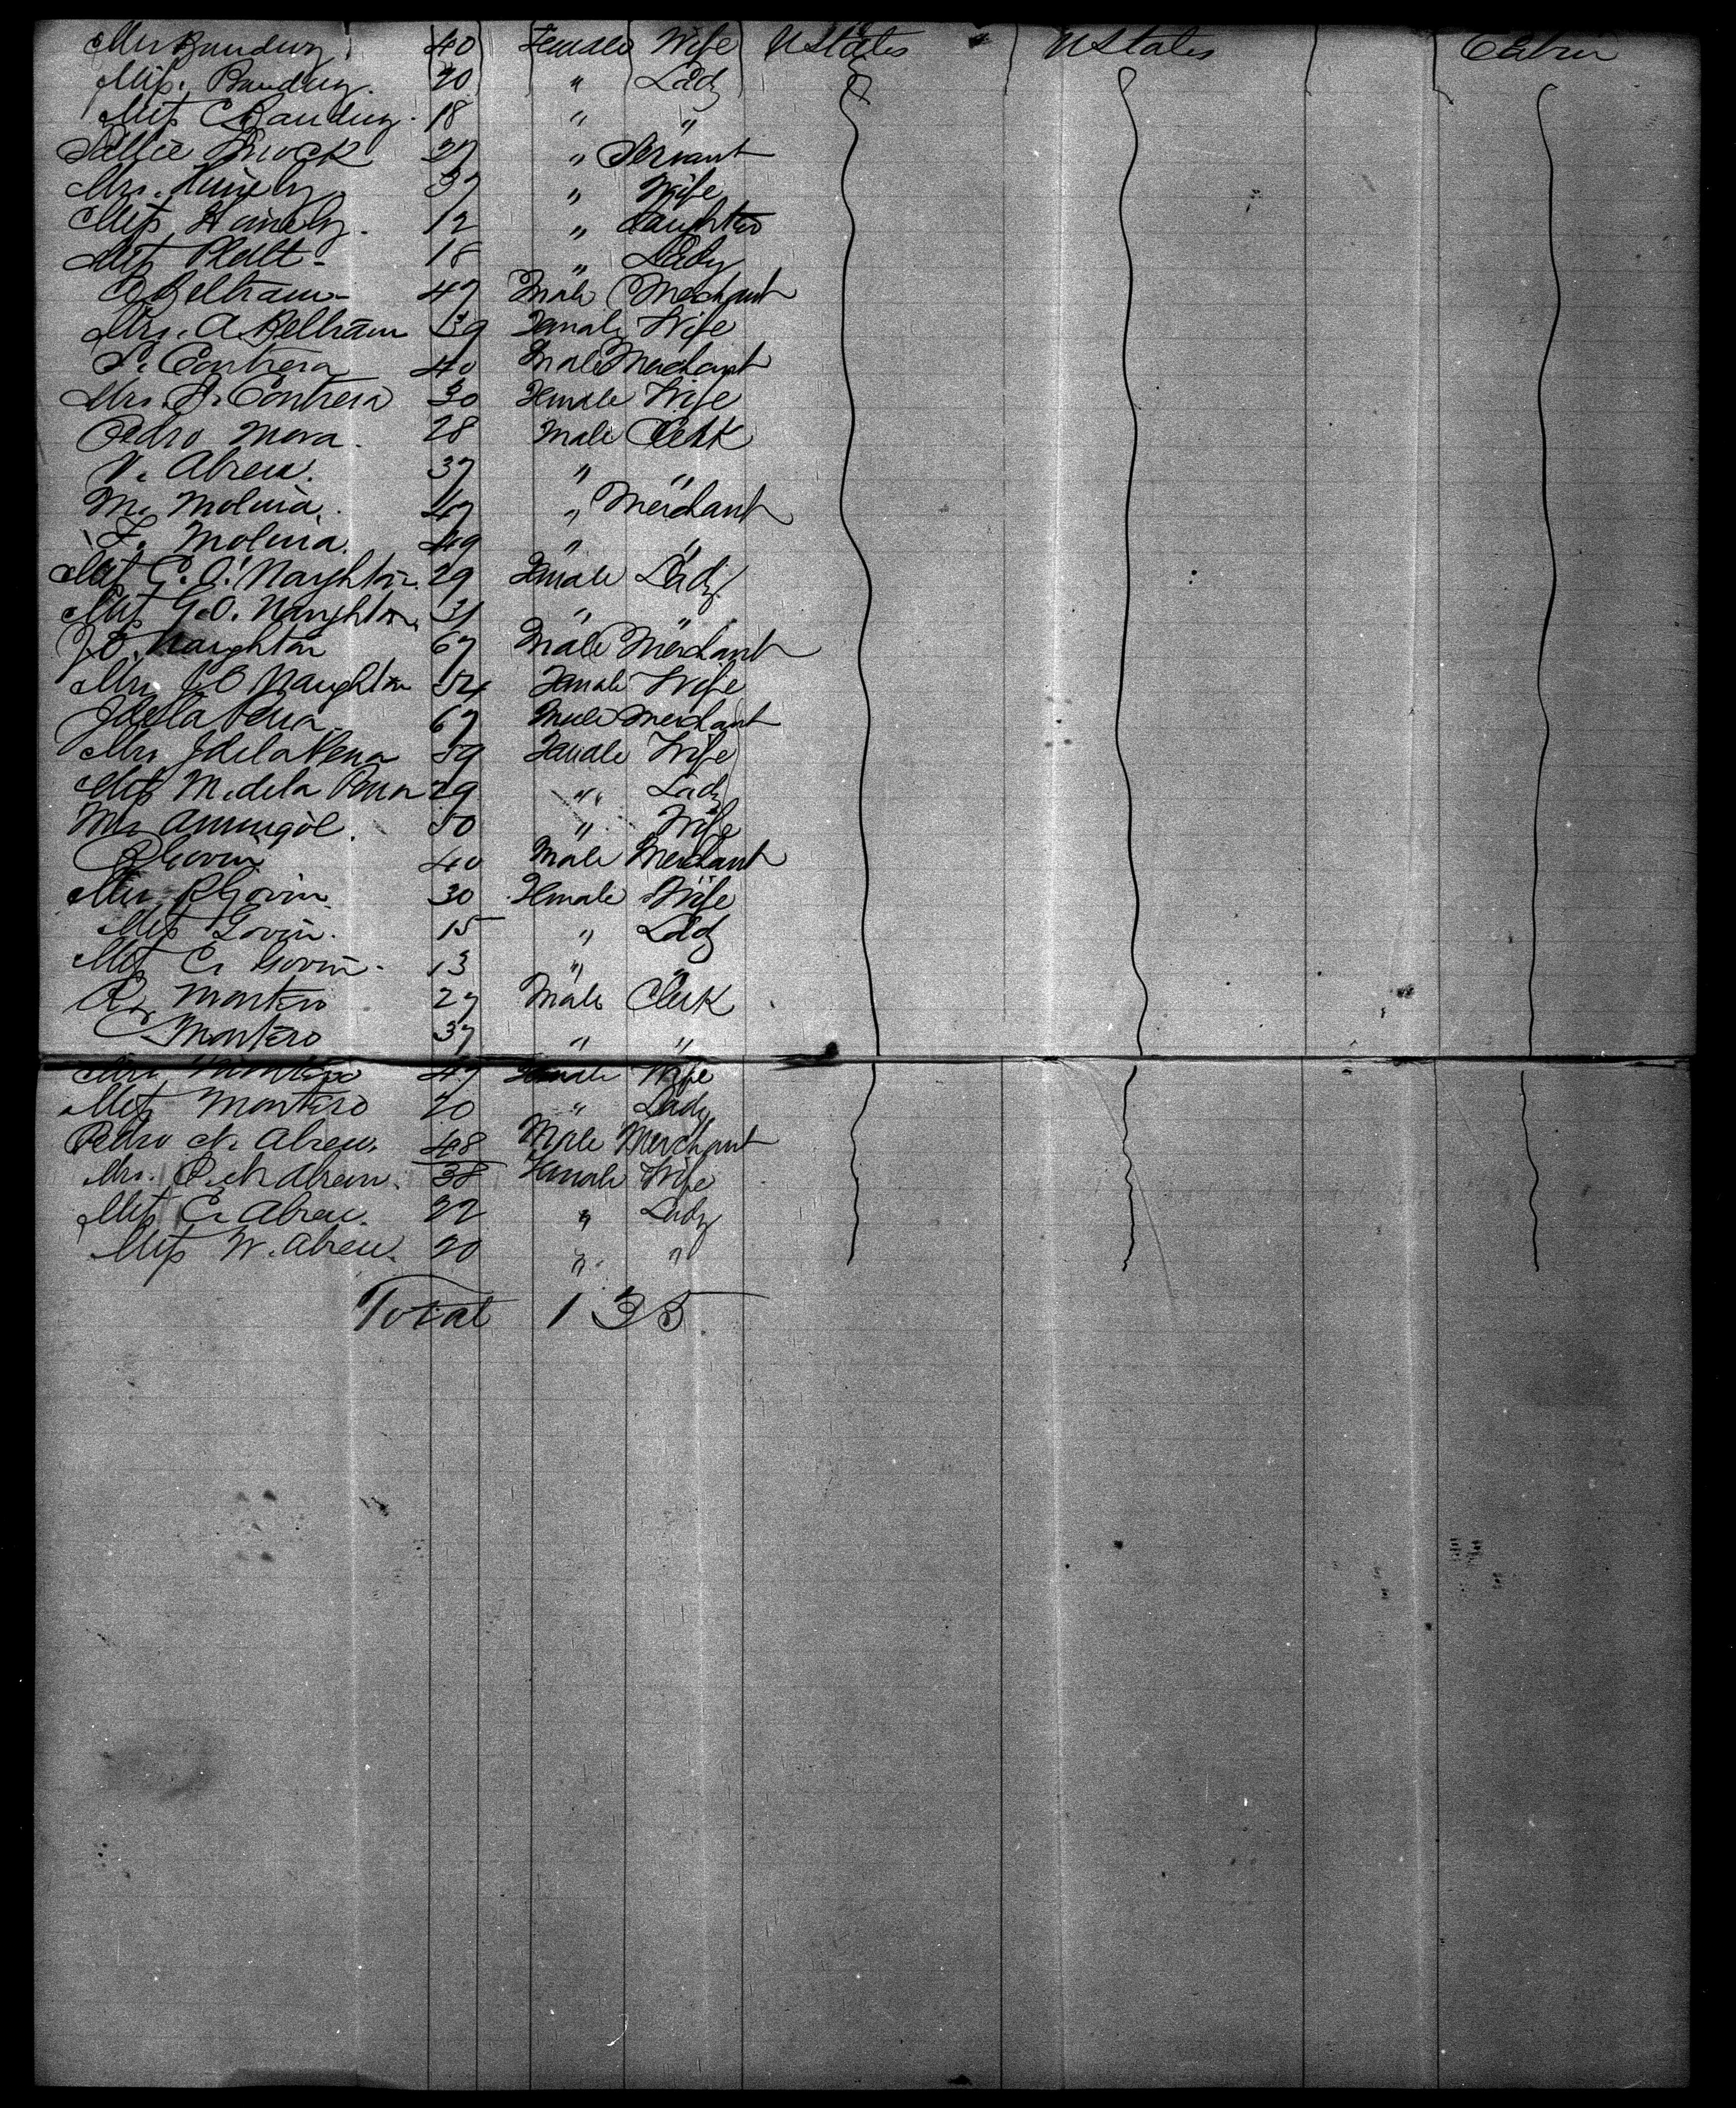 Mrs Bauduy 40 Female Wife U States U States Cabin
Miss Bauduy. 20 " Lady
Miss C Bauduy. 18 " "
Sallie Brock 27 " Servant
Mrs. Hainely 37 " Wife
Miss Hainely. 12 " Daughter
Miss Platt - 18 " Lady
Beltram - 47 Male Merchant
Mrs. A. Beltram 39 Female Wife
Contrera 40 Male Merchant
Mrs. Contrera 30 Female Wife
Pedro Mora. 28 Male Clerk
V. Abreu. 37 " "
M. Molina. 47 " Merchant
F. Molina. 49 " "
Miss C. O. Naughton. 29 Female Lady
Miss G. O. Naughton. 31 " "
J O. Naughton 67 Male Merchant
Mrs J O Naughton 54 Female Wife
J de la Pena 67 Male Merchant
Mrs J de la Pena 59 Female Wife
Miss M. de la Pena 29 " Lady
Mrs 50 " Wife
R Govin 40 Male Merchant
Mrs R Govin. 30 Female Wife
Miss Govin. 15 " Lady
Miss C. Govin. 13 " "
R. Montero 27 Male Clerk
Montero 37 " "
Mrs Montero 47 Female Wife
Miss Montero 20 " Lady
Pedro N. Abreu. 48 Male Merchant
Mrs. P. N Abreu. 38 Female Wife
Miss C. Abreu. 22 " Lady
Miss W. Abreu. 20 " "
Total 135